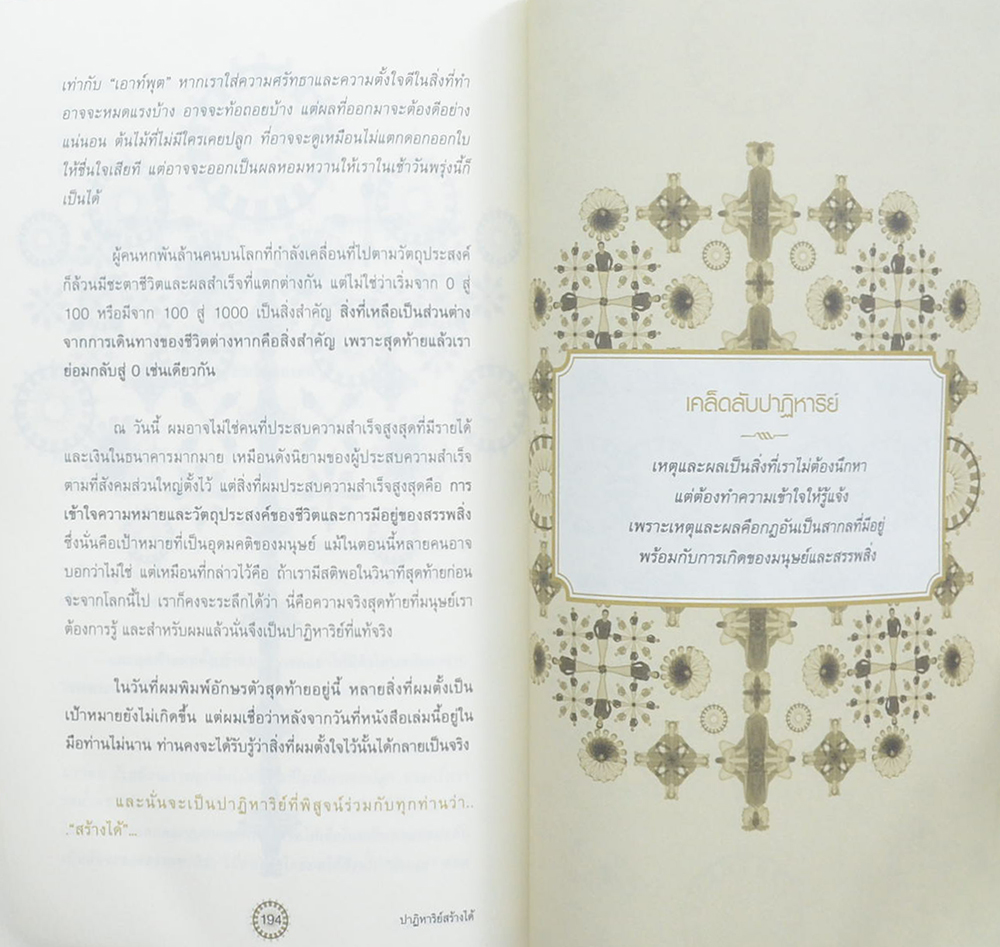 เท่ากับ “เอาท์พุต” หากเราใส่ความศรัทธาและความตั้งใจดีในสิ่งที่ทำ
อาจจะหมดแรงบ้าง อาจจะท้อถอยบ้าง แต่ผลที่ออกมาจะต้องดีอย่าง
แน่นอน ต้นไม้ที่ไม่มีใครเคยปลูก ที่อาจจะดูเหมือนไม่แตกดอกออกใบ
ให้ชื่นใจเสียที แต่อาจจะออกเป็นผลหอมหวานให้เราในเช้าวันพรุ่งนี้ก็
เป็นได้
ผู้คนหกพันล้านคนบนโลกที่กำลังเคลื่อนที่ไปตามวัตถุประสงค์
ก็ล้วนมีชะตาชีวิตและผลสำเร็จที่แตกต่างกัน แต่ไม่ใช่ว่าเริ่มจาก 0 สู่
100 หรือมีจาก 100 สู่ 1000 เป็นสิ่งสำคัญ สิ่งที่เหลือเป็นส่วนต่าง
จากการเดินทางของชีวิตต่างหากคือสิ่งสำคัญ เพราะสุดท้ายแล้วเรา
ย่อมกลับสู่ 0 เช่นเดียวกัน
ณ วันนี้ ผมอาจไม่ใช่คนที่ประสบความสำเร็จสูงสุดที่มีรายได้
และเงินในธนาคารมากมาย เหมือนดังนิยามของผู้ประสบความสำเร็จ
ตามที่สังคมส่วนใหญ่ตั้งไว้ แต่สิ่งที่ผมประสบความสำเร็จสูงสุดคือ การ
เข้าใจความหมายและวัตถุประสงค์ของชีวิตและการมีอยู่ของสรรพสิ่ง
ซึ่งนั่นคือเป้าหมายที่เป็นอุดมคติของมนุษย์ แม้ในตอนนี้หลายคนอาจ
บอกว่าไม่ใช่ แต่เหมือนที่กล่าวไว้คือ ถ้าเรามีสติพอในวินาทีสุดท้ายก่อน
จะจากโลกนี้ไป เราก็คงจะระลึกได้ว่า นี่คือความจริงสุดท้ายที่มนุษย์เรา
ต้องการรู้ และสำหรับผมแล้วนั่นจึงเป็นปาฏิหาริย์ที่แท้จริง
ในวันที่ผมพิมพ์อักษรตัวสุดท้ายอยู่นี้ หลายสิ่งที่ผมตั้งเป็น
เป้าหมายยังไม่เกิดขึ้น แต่ผมเชื่อว่าหลังจากวันที่หนังสือเล่มนี้อยู่ใน
มือท่านไม่นาน ท่านคงจะได้รับรู้ว่าสิ่งที่ผมตั้งใจไว้นั้นได้กลายเป็นจริง
และนั่นจะเป็นปาฏิหาริย์ที่พิสูจน์ร่วมกับทุกท่านว่า..
.“สร้างได้”...
194
ปาฏิหาริย์สร้างได้
เคล็ดลับปาฏิหาริย์
เหตุและผลเป็นสิ่งที่เราไม่ต้องนึกหา
แต่ต้องทำความเข้าใจให้รู้แจ้ง
เพราะเหตุและผลคือกฎอันเป็นสากลที่มีอยู่
พร้อมกับการเกิดของมนุษย์และสรรพสิ่ง